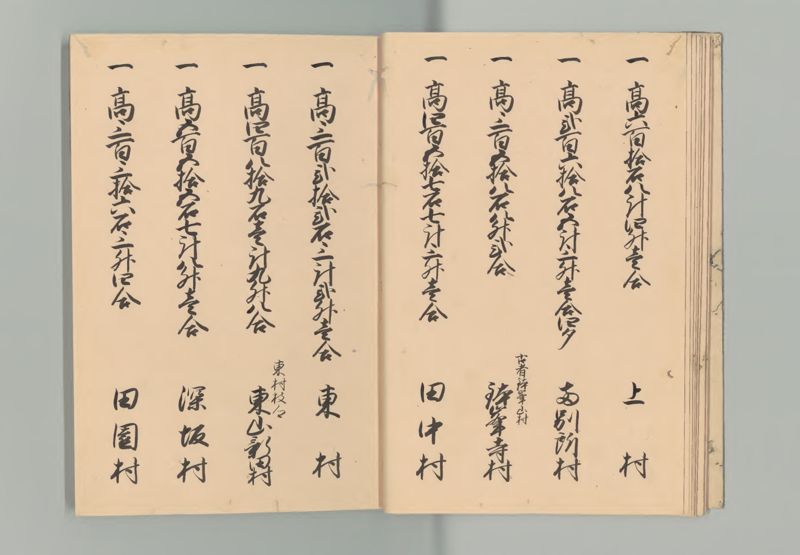 一 髙六百拾石八斗四升壱合 上村
一 髙弐百六拾八石五斗三升壱合四夕 南別所村
一 髙三百五拾八石八升弐合 古者鉢峯山村 鉢峯寺村
一 髙四百五拾七石七斗三升壱合 田中村
一 髙三百弐拾弐石三斗弐升壱合 東村
一 髙四百八拾九石壱斗九升八合 東村枝郷 東山新田村
一 髙五百五拾五石七斗八升壱合 深坂村
一 髙三百三拾六石三升四合 田園村